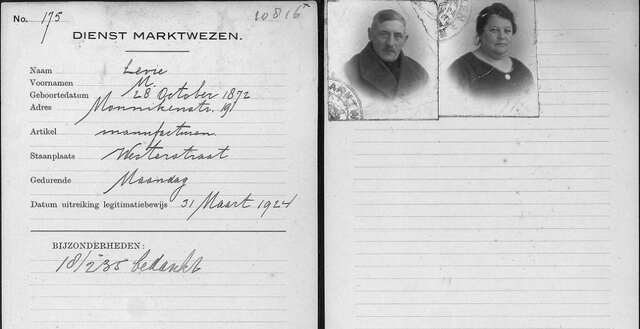 No. 175
10816
DIENST MARKTWEZEN.
Naam Levie
Voornamen M.
Geboortedatum 28 October 1872
Adres Monnikenstr. 19I
Artikel manufacturen
Staanplaats Westerstraat
Gedurende Maandag
Datum uitreiking legitimatiebewijs 31 Maart 1924
BIJZONDERHEDEN:
18/2-35 bedankt